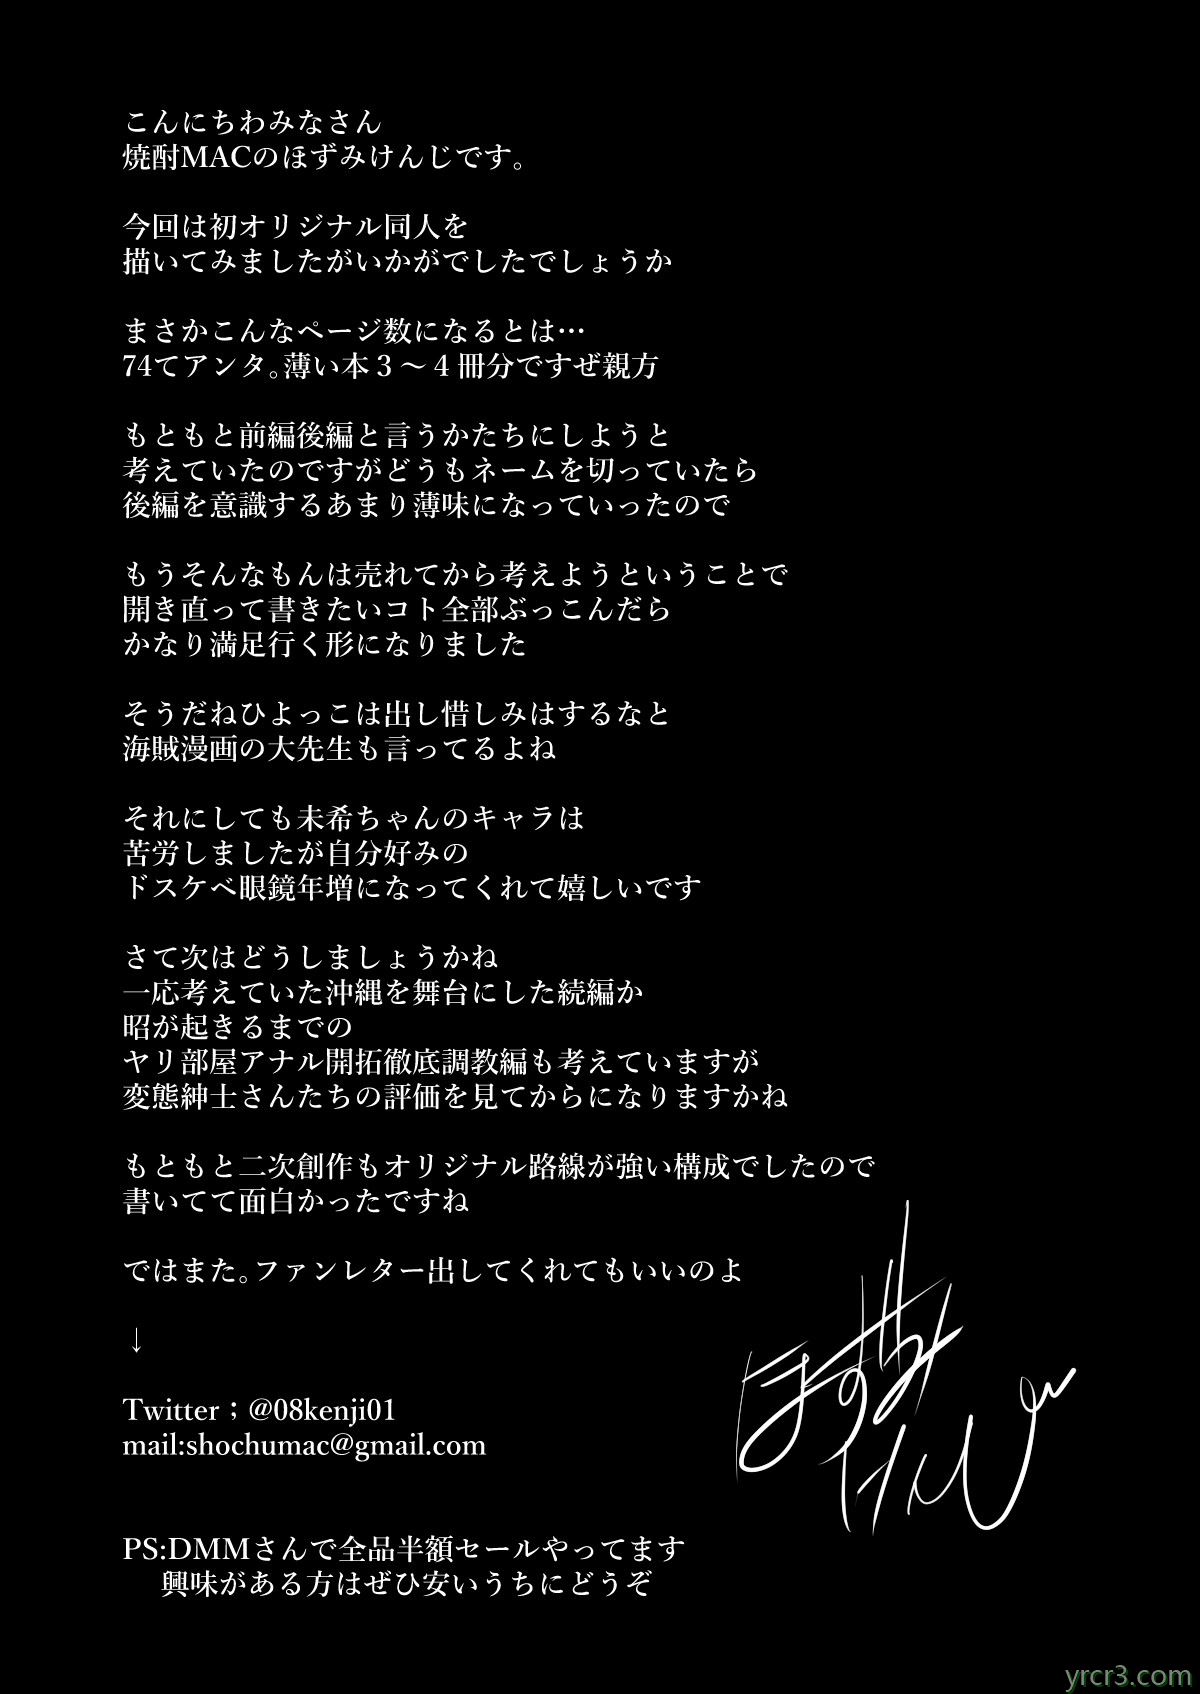 こんにちわみなさん
焼酎MACのほずみけんじです。
今回は初オリジナル同人を
描いてみましたがいかがでしたでしょうか
まさかこんなページ数になるとは…
74てアンタ。薄い本３～４冊分ですぜ親方
もともと前編後編と言うかたちにしようと
考えていたのですがどうもネームを切っていたら
後編を意識するあまり薄味になっていったので
もうそんなもんは売れてから考えようということで
開き直って書きたいコト全部ぶっこんだら
かなり満足行く形になりました
そうだねひよっこは出し惜しみはするなと
海賊漫画の大先生も言ってるよね
それにしても未希ちゃんのキャラは
苦労しましたが自分好みの
ドスケベ眼鏡年増になってくれて嬉しいです
さて次はどうしましょうかね
一応考えていた沖縄を舞台にした続編か
昭が起きるまでの
ヤリ部屋アナル開拓徹底調教編も考えていますが
変態紳士さんたちの評価を見てからになりますかね
もともと二次創作もオリジナル路線が強い構成でしたので
書いてて面白かったですね
ではまた。ファンレター出してくれてもいいのよ
↓
Twitter；@08kenji01
mail:shochumac@gmail.com
ほずみ
けんじ
PS:DMMさんで全品半額セールやってます
興味がある方はぜひ安いうちにどうぞ
yrcr3.com